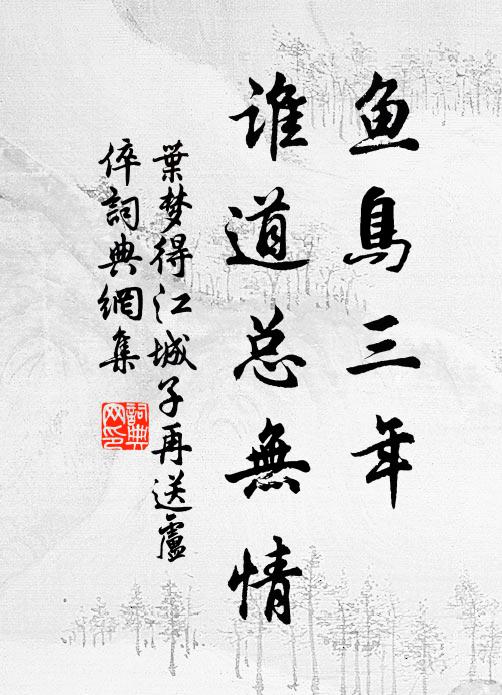 鱼鳥三年
谁道总無情
葉梦得江城子再送盧
倅詞典網集
詞典
网印